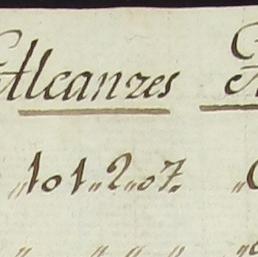 Alcanzes
„101„2„07.